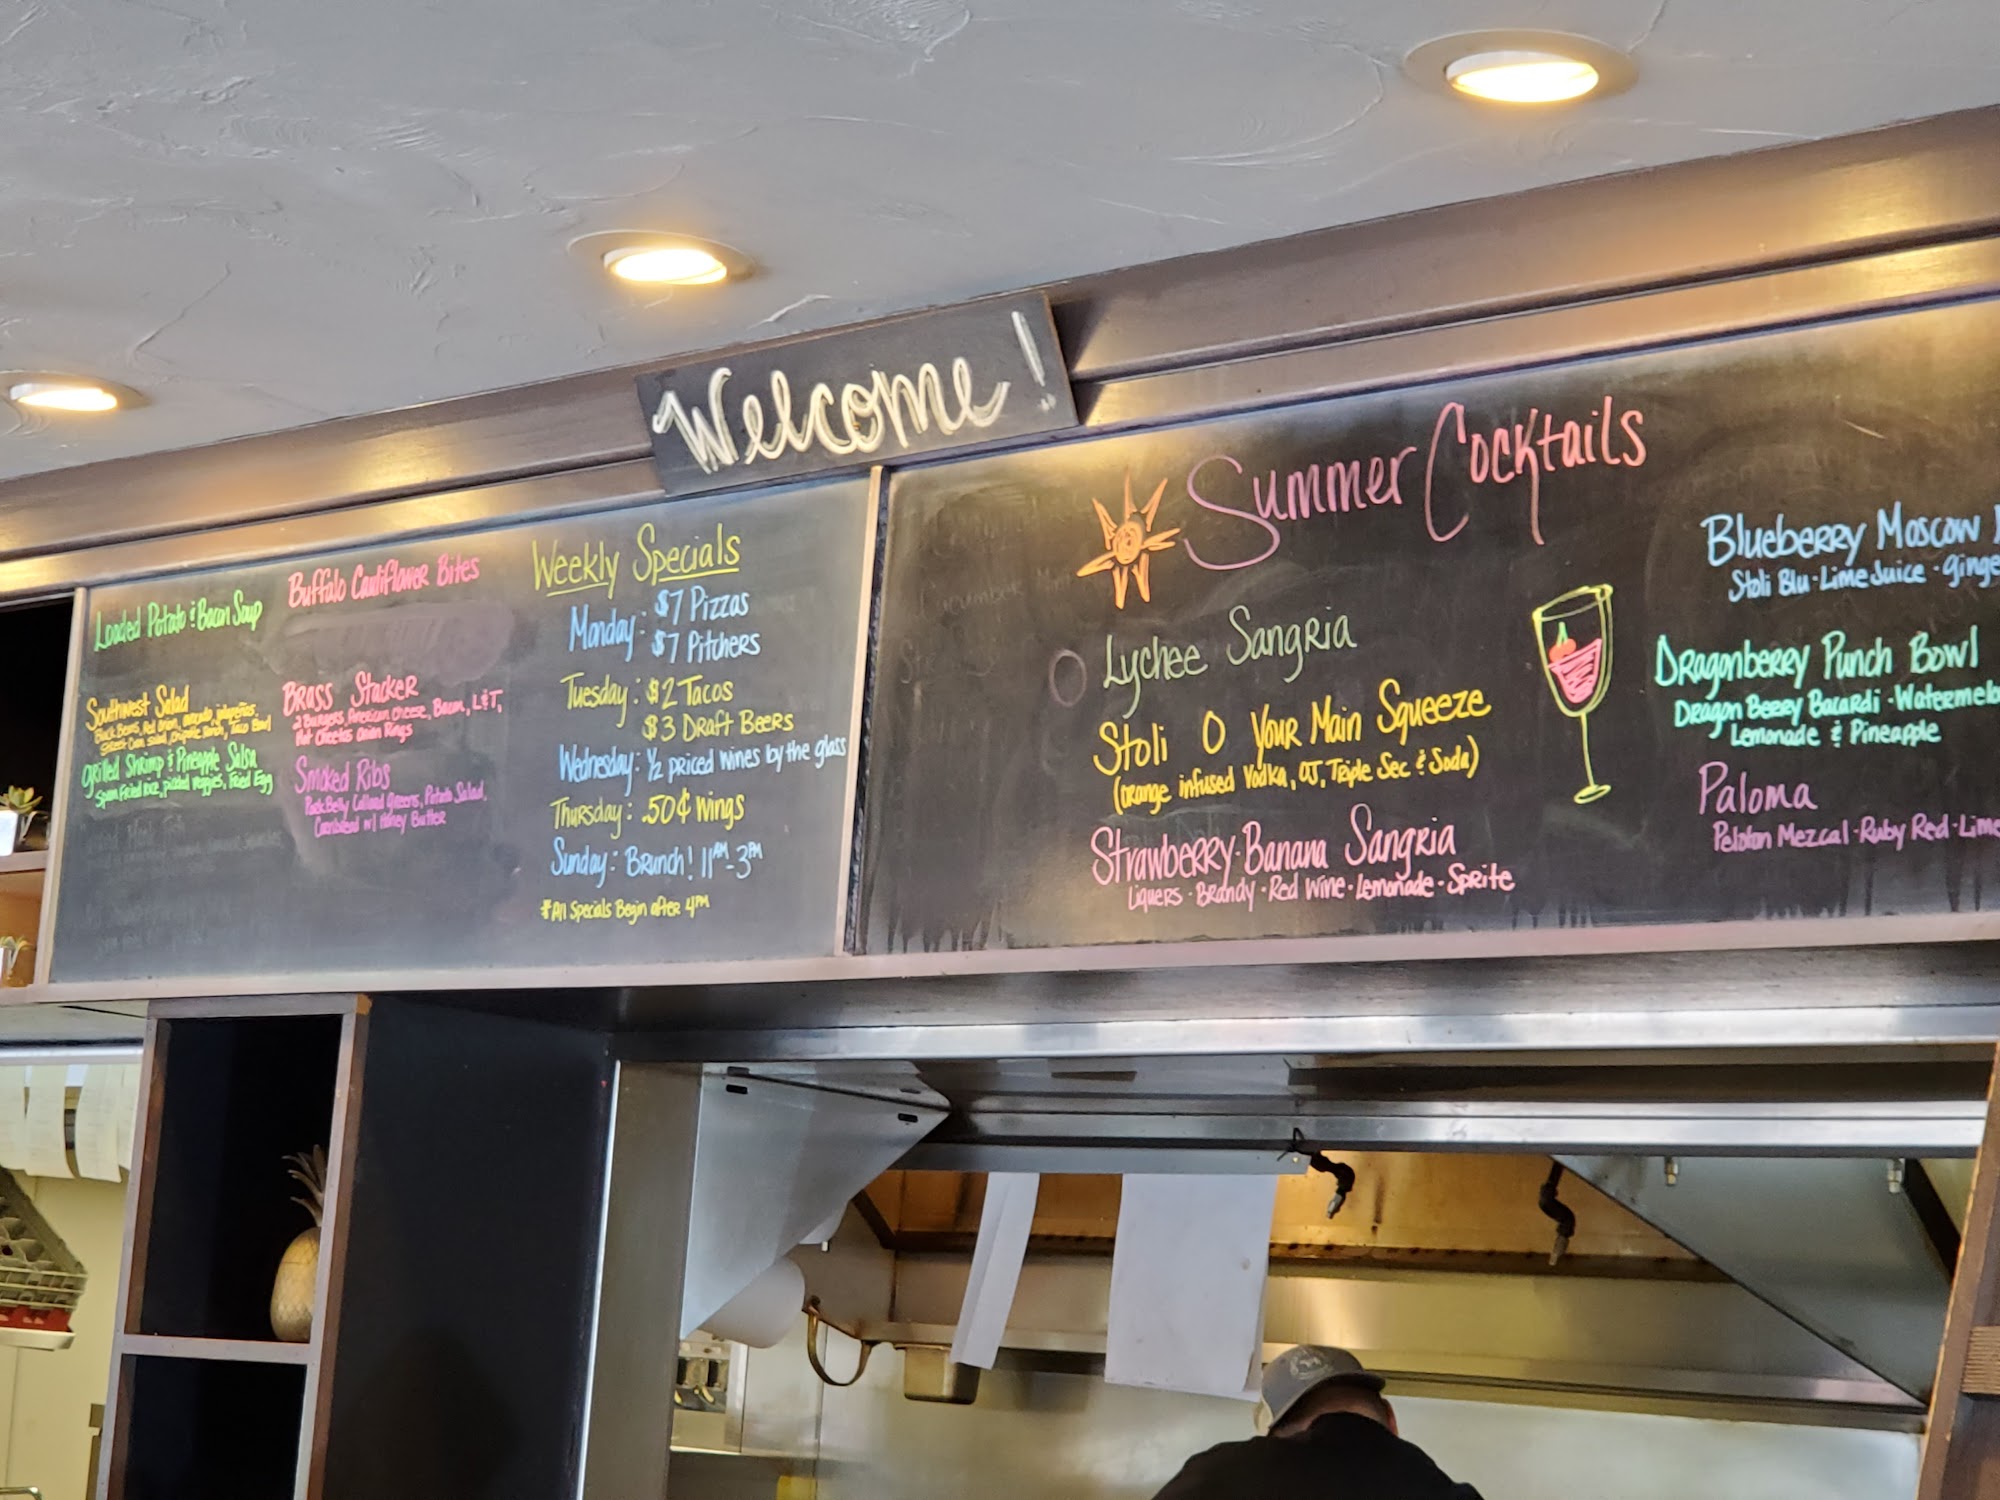 Welcome!
Loaded Potato & Bacon Soup
Southwest Salad
Black Beans, Red Onion, avocado, jalapeños,
Street Corn Salad, Chipotle Ranch, Taco Bowl
Grilled Shrimp & Pineapple Salsa
Spam Fried rice, pickled veggies, Fried Egg
Buffalo Cauliflower Bites
Brass Stacker
2 Burgers, American Cheese, Bacon, L&T,
Hot Cheetos Onion Rings
Smoked Ribs
Pork Belly Collard Greens, Potato Salad,
Cornbread w/ Honey Butter
Weekly Specials
Monday: $7 Pizzas
$7 Pitchers
Tuesday: $2 Tacos
$3 Draft Beers
Wednesday: ½ priced wines by the glass
Thursday: .50¢ wings
Sunday: Brunch! 11AM-3PM
*All Specials Begin after 4PM
Summer Cocktails
Lychee Sangria
Stoli O Your Main Squeeze
(orange infused Vodka, OJ, Triple Sec & Soda)
Strawberry-Banana Sangria
Liquers · Brandy · Red Wine · Lemonade · Sprite
Blueberry Moscow
Stoli Blu · Lime Juice · ginge
Dragonberry Punch Bowl
Dragon Berry Bacardi · Watermelo
Lemonade & Pineapple
Paloma
Peloton Mezcal · Ruby Red · Lime